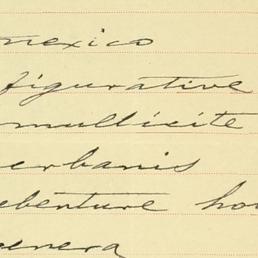 mexico
figurative
mullicite
erbanis
ebenture hou
genera